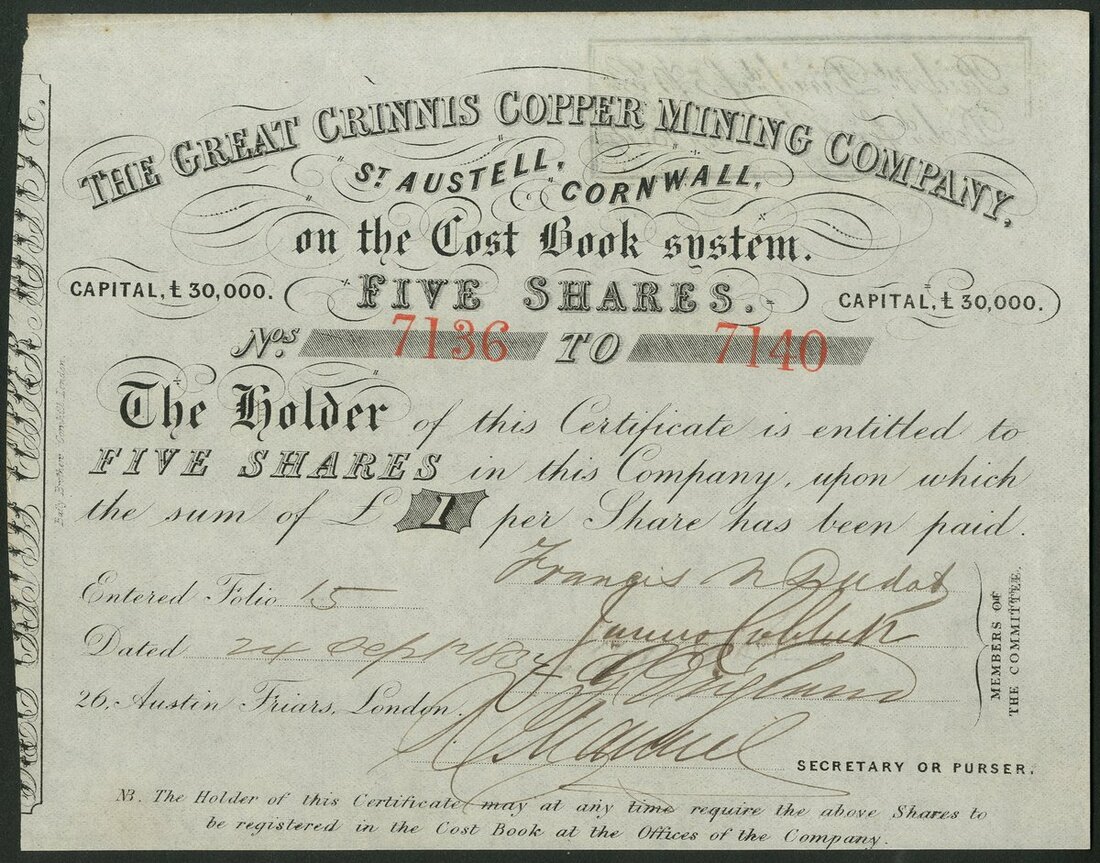 THE GREAT CRINNIS COPPER MINING COMPANY,
ST AUSTELL, CORNWALL,
on the Cost Book system.
CAPITAL, £30,000. FIVE SHARES. CAPITAL, £30,000.
Nos. 7136 TO 7140
The Holder of this Certificate is entitled to
FIVE SHARES in this Company, upon which
the sum of £ 1 per Share has been paid.
Francis
Entered Folio 15
James
Dated 24 Sept
26, Austin Friars, London.
MEMBERS OF
THE COMMITTEE.
SECRETARY OR PURSER.
NB. The Holder of this Certificate may at any time require the above Shares to
be registered in the Cost Book at the Offices of the Company.